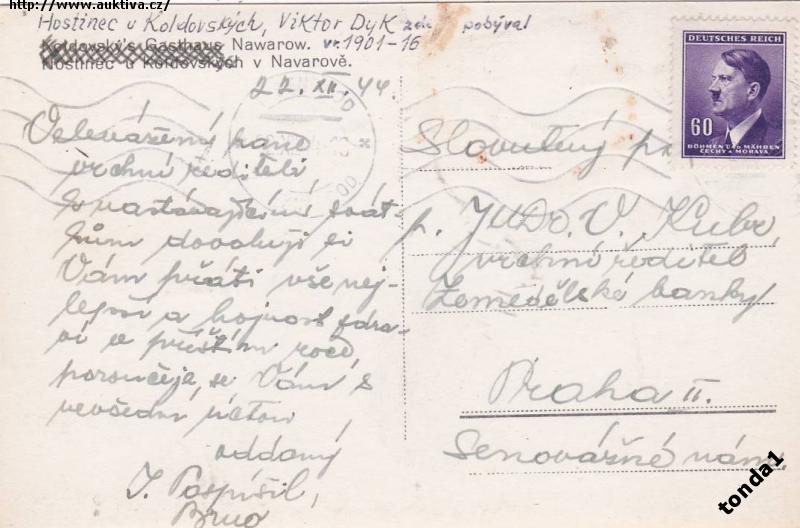 http://www.auktiva.cz/
Hostinec u Koldovských, Viktor Dyk zde pobýval
Koldovský's Gasthaus Nawarow. vr. 1901-16
Hostinec u Koldovských v Navarově.
22. XII. 44.
Velevážený pane
vrchní řediteli
K nastávajícím svát-
kům dovoluji si
Vám přáti vše nej-
lepší a hojnost zdra-
ví v příštím roce,
poroučeje se Vám s
nevšední úctou
oddaný
J. Pospíšil,
Brno
DEUTSCHES REICH
60
BÖHMEN U. MÄHREN
ČECHY A MORAVA
Slovutný
p. JUDr. V. Kubr,
vrchní ředitel
Zemědělské banky
Praha II.
Senovážné nám.
tonda1